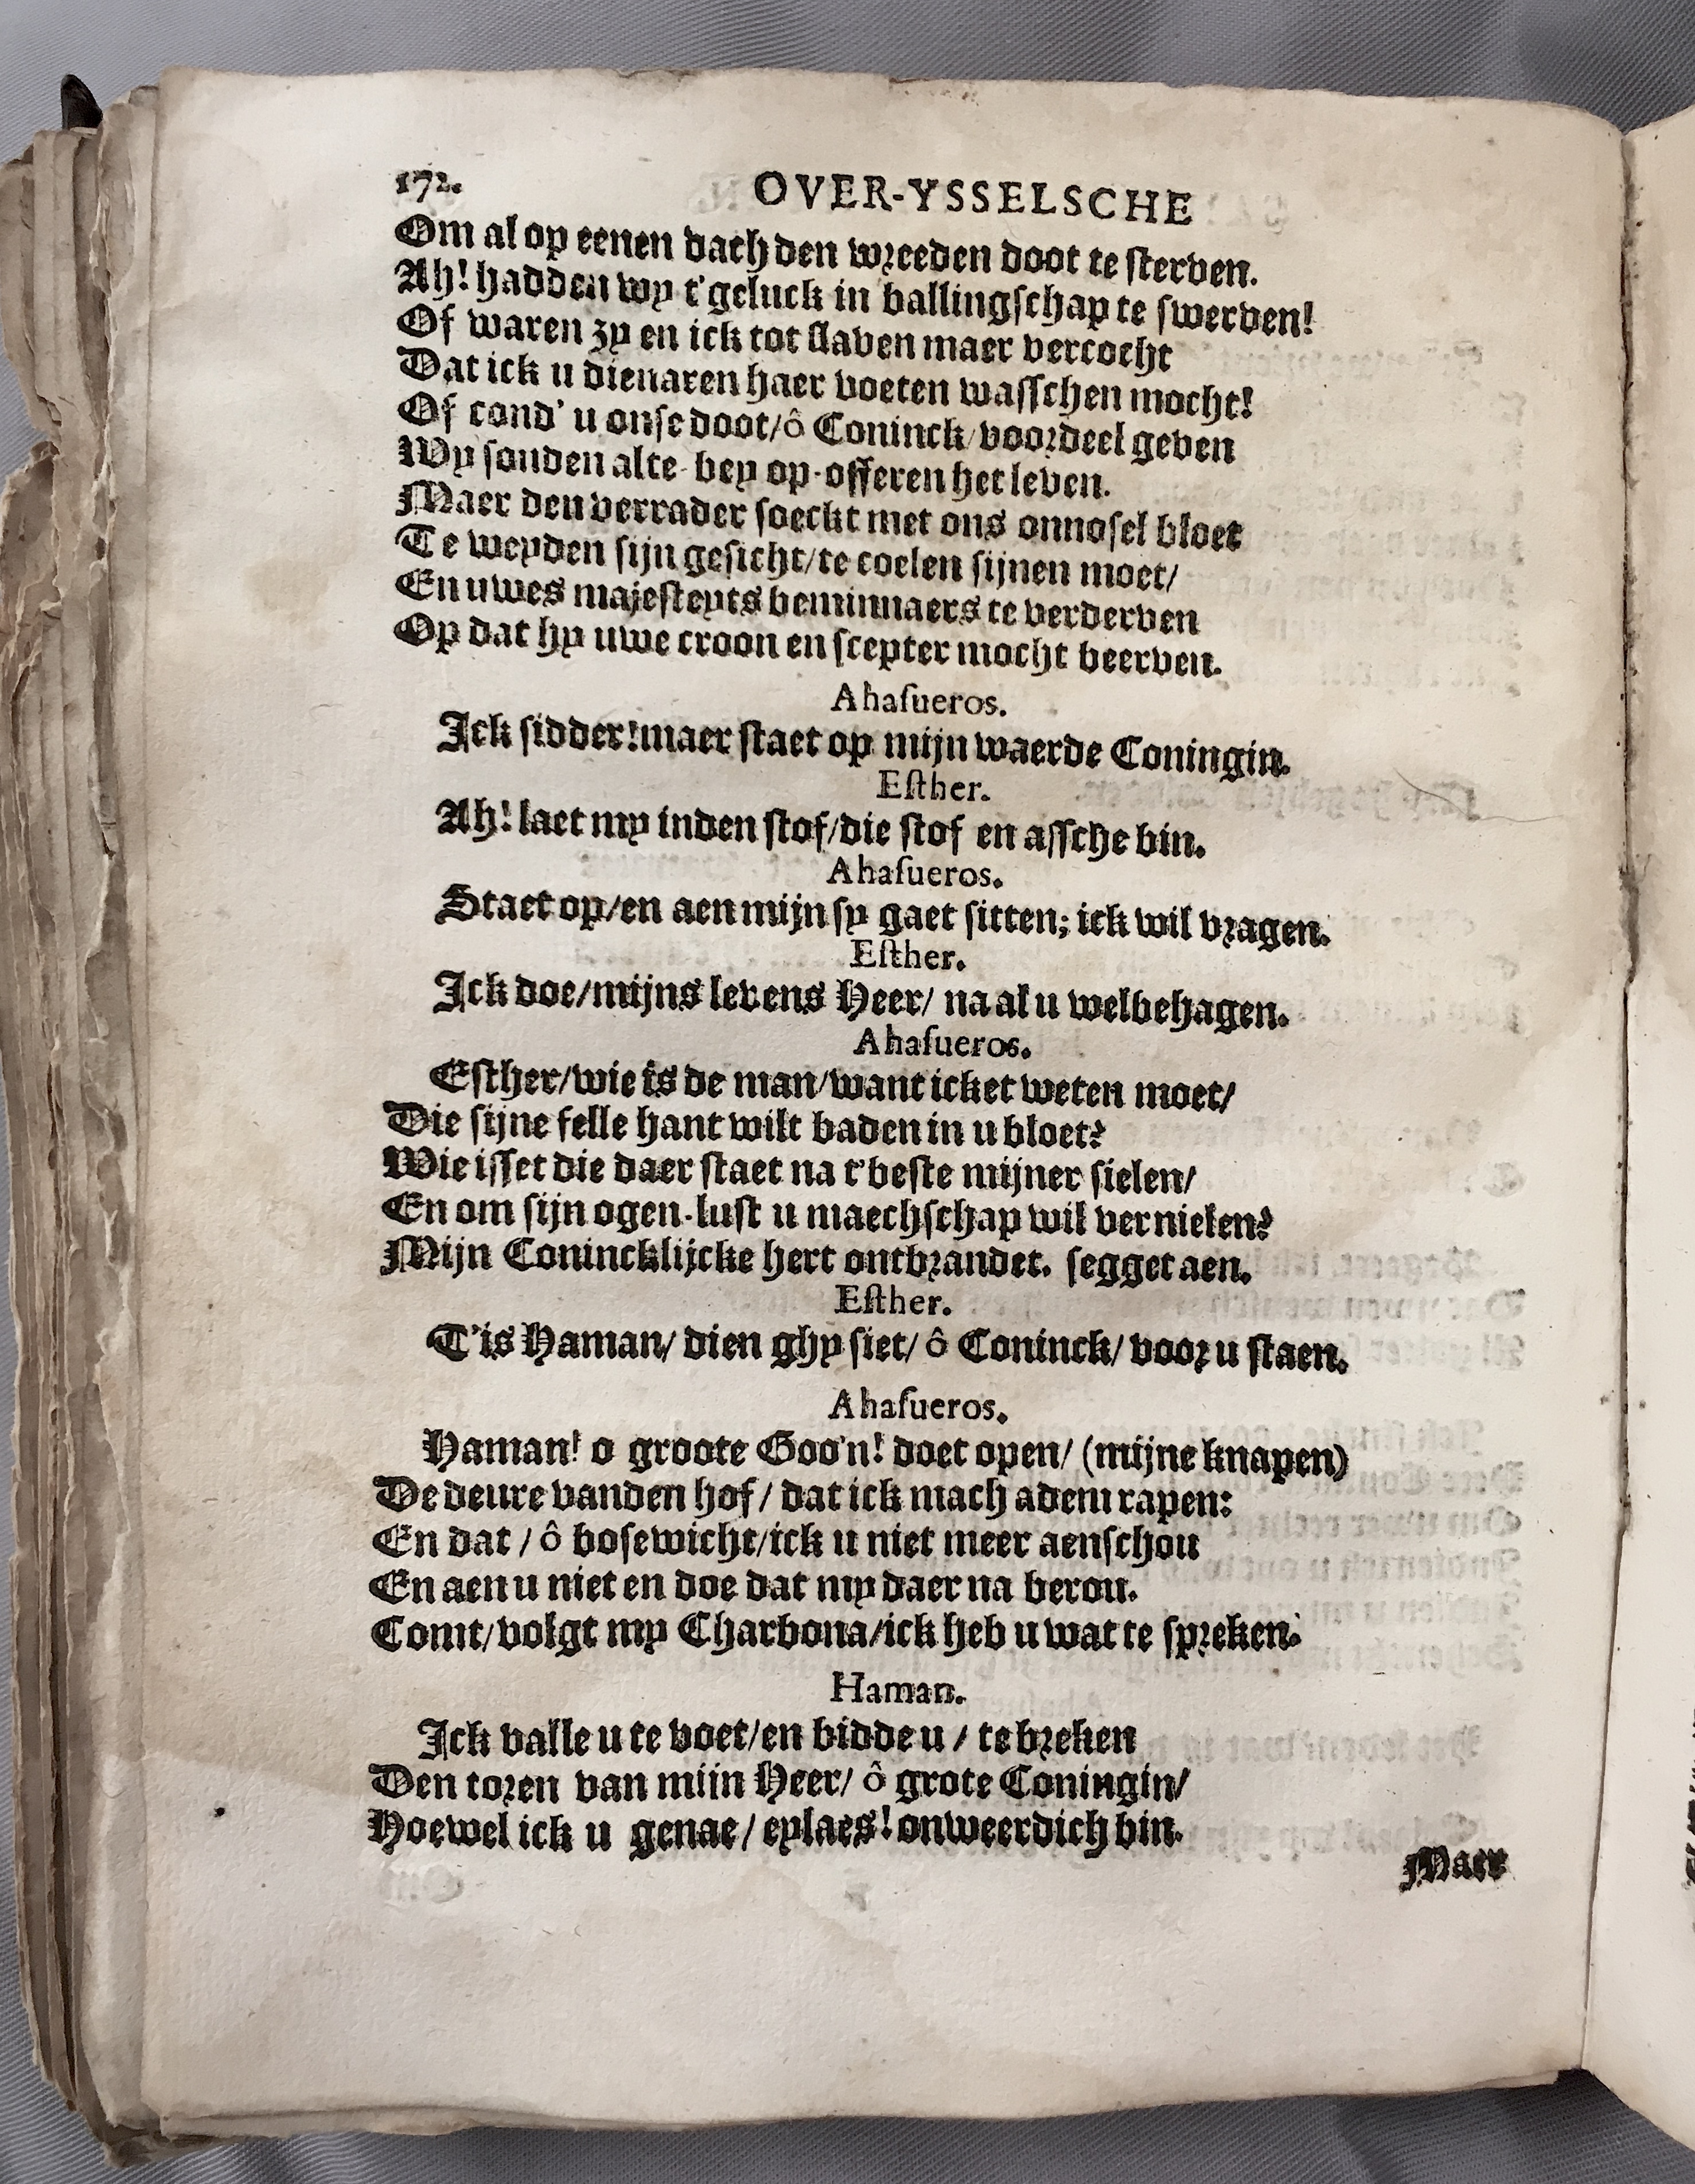 172. OVER-YSSELSCHE
Om al op eenen dach den wreeden doot te sterven.
Ah! hadden wy t'geluck in ballingschap te swerven!
Of waren zy en ick tot slaven maer vercocht
Dat ick u dienaren haer voeten wasschen mocht!
Of cond' u onse doot/ ô Coninck/ voordeel geven
Wy souden alte-bey op-offeren het leven.
Maer den verrader soeckt met ons onnosel bloet
Te weyden sijn gesicht/ te coelen sijnen moet/
En uwes majesteyts beminnaers te verderven
Op dat hy uwe croon en scepter mocht beerven.
Ahasueros.
Ick sidder! maer staet op mijn waerde Coningin.
Esther.
Ah! laet my inden stof/ die stof en assche bin.
Ahasueros.
Staet op/ en aen mijn sy gaet sitten; ick wil vragen.
Esther.
Ick doe/ mijns levens Heer/ na al u welbehagen.
Ahasueros.
Esther/ wie is de man/ want icket weten moet/
Die sijne felle hant wilt baden in u bloet?
Wie isset die daer staet na t'beste mijner sielen/
En om sijn ogen-lust u maechschap wil vernielen?
Mijn Conincklijcke hert ontbrandet. segget aen.
Esther.
T'is Haman/ dien ghy siet/ ô Coninck/ voor u staen.
Ahasueros.
Haman! o groote Goo'n! doet open/ (mijne knapen)
De deure vanden hof/ dat ick mach adem rapen:
En dat/ ô bosewicht/ ick u niet meer aenschou
En aen u niet en doe dat my daer na berou.
Comt/ volgt my Charbona/ ick heb u wat te spreken.
Haman.
Ick valle u te voet/ en bidde u/ te breken
Den toren van mijn Heer/ ô grote Coningin/
Hoewel ick u genae/ eylaes! onweerdich bin.
Maer